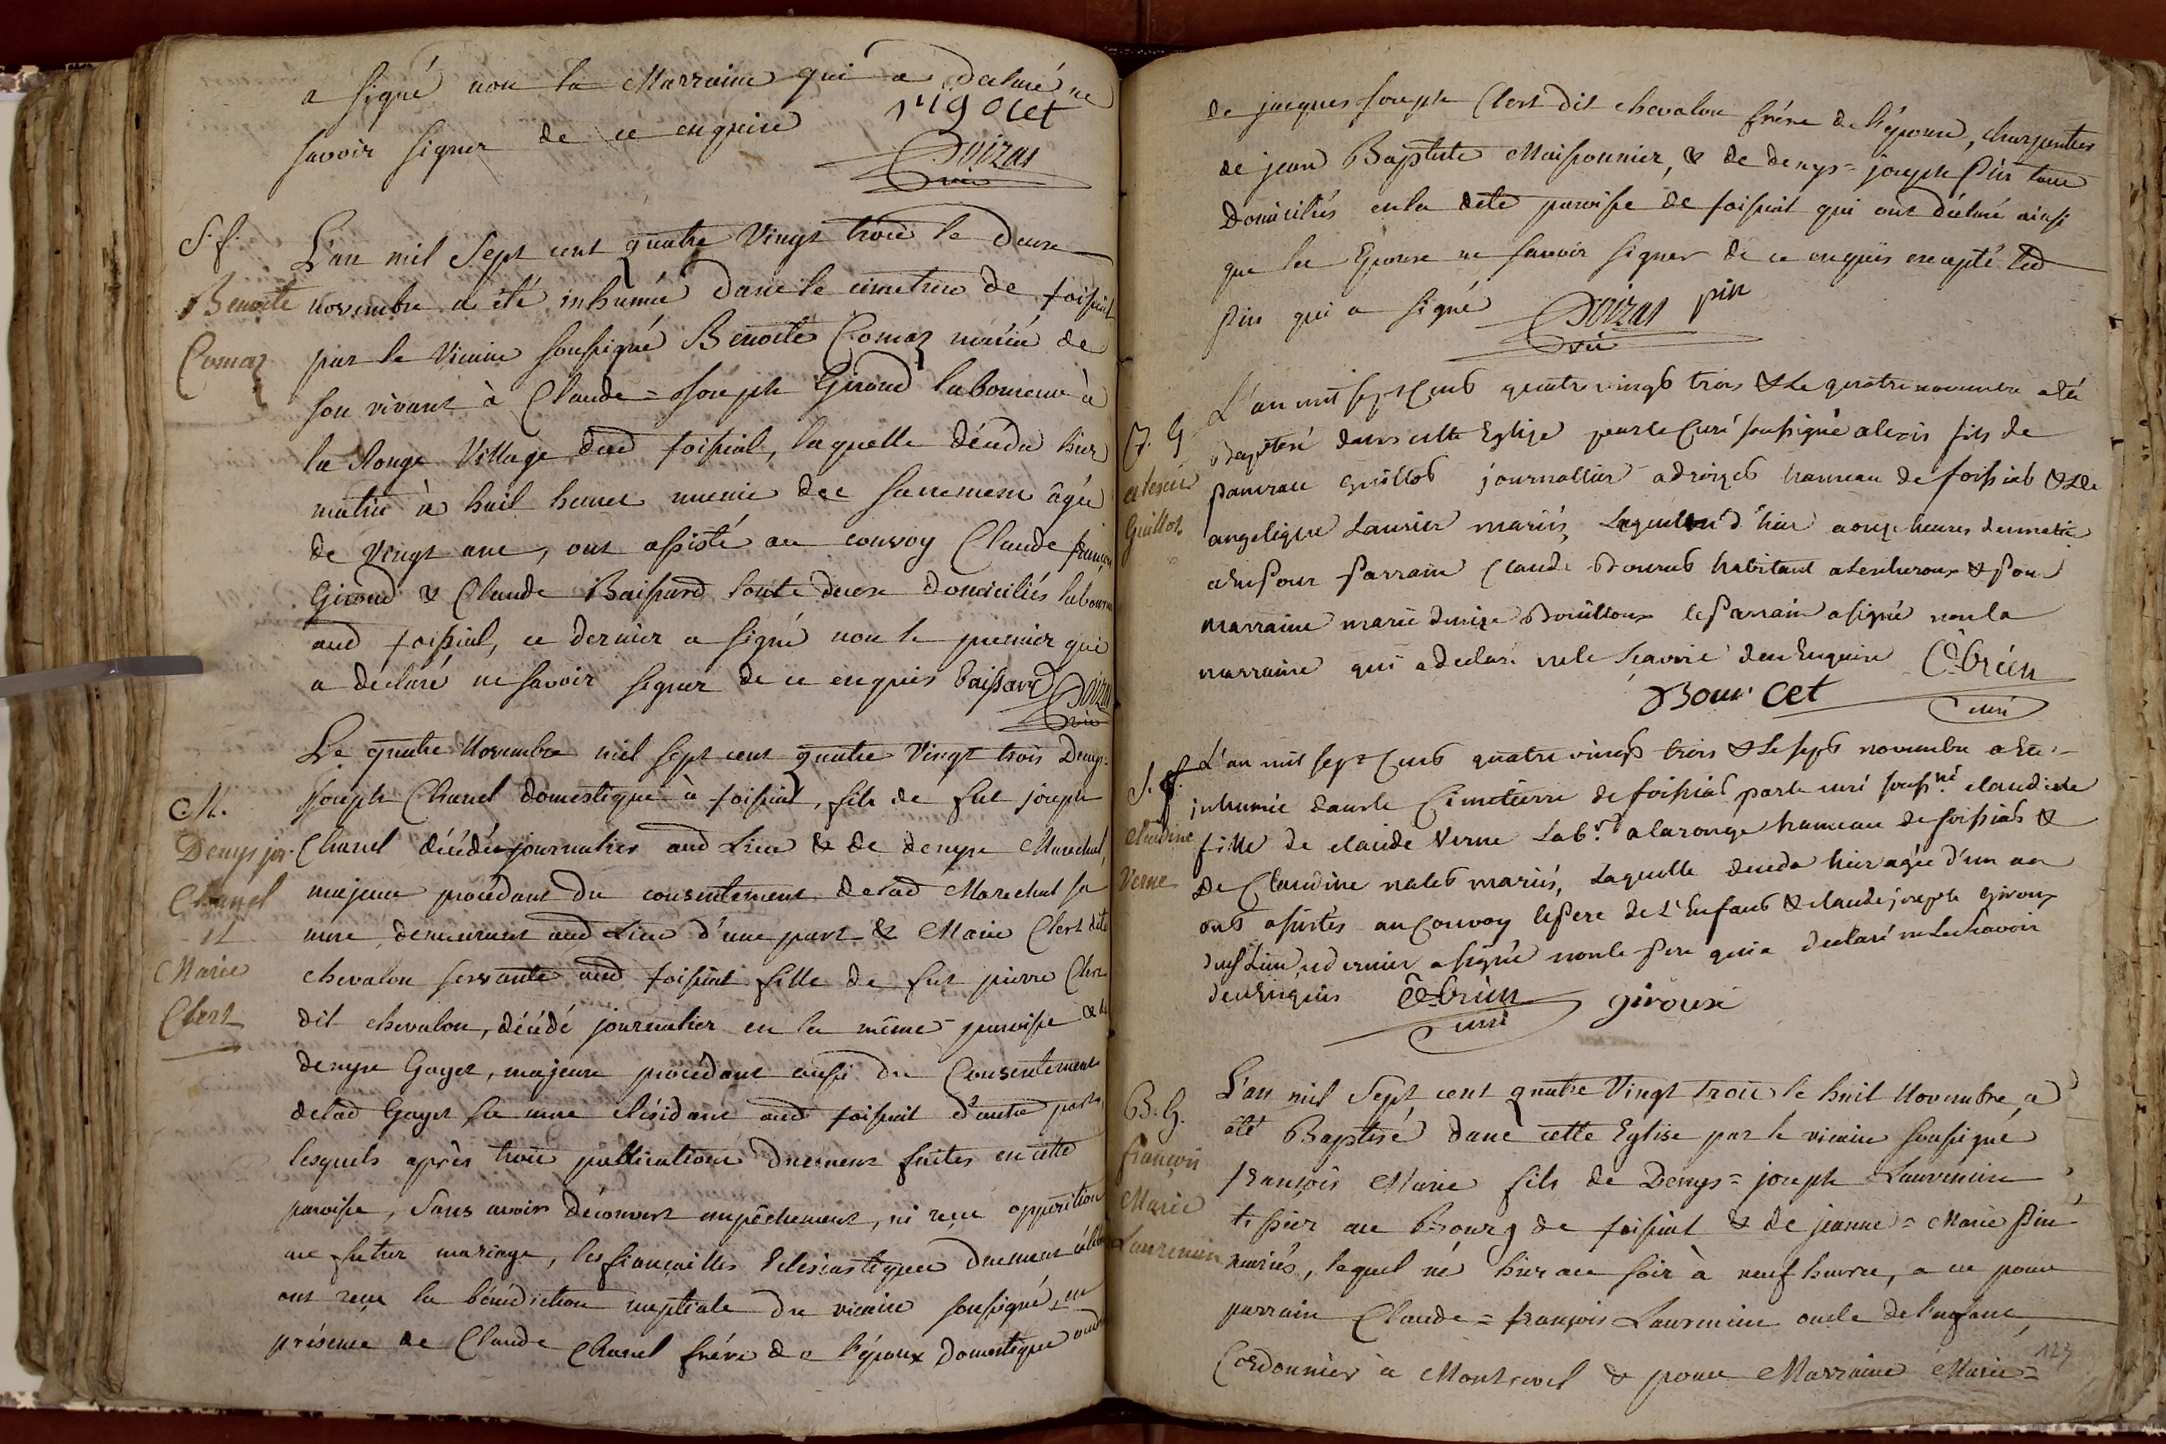 a signé non la Marraine qui a declaré ne
savoir signer de ce enquise rigolet
Doizas
vic
S. f.
Benoite
Comaz
L'an mil sept cent quatre vingt trois le deux
novembre a été inhumée dans le cimetiere de foissiat
par le vicaire soussigné Benoite Comaz mariée de
son vivant à Claude = Joseph Giroud laboureur à
la Rouge village dud foissiat, laquelle décéda hier
matin à huit heures munie des sacremens âgée
de vingt ans, ont assisté au convoy Claude françois
Giroud & Claude Baissard tous deux domiciliés laboureurs
aud foissiat, ce dernier a signé non le premier qui
a declaré ne savoir signer de ce enquis baissard Doizas
vic
M.
Denys jos.
Chanel
et
Marie
Clert
Le quatre Novembre mil sept cent quatre vingt trois Denys =
Joseph Chanel domestique à foissiat, fils de feu joseph
Chanel décédé journalier aud Lieu & de denyse Marechal,
majeur procédant du consentement de lad Marechal sa
mere demeurant aud Lieu d'une part & Marie Clert dite
chevalon servante aud foissiat fille de feu pierre Clert
dit chevalon, décédé journalier en la même = paroisse & de
denyse Gayet, majeure procédant aussi du Consentement
de lad Gayet sa mere résidant aud foissiat d'autre part,
lesquels après trois publications duement faites en cette
paroisse, sans avoir découvert empêchement, ni reçu opposition
au futur mariage, les fiançailles Eclesiastiques duement célébrées
ont reçu la bénédiction nuptiale du vicaire soussigné en
présence de Claude Chanel frére de l'époux domestique aud
de jacques Joseph Clert dit chevalon frére de l'épouse, charpentier
de jean Baptiste Maissonnier, & de denys = joseph Pin tous
domiciliés en la dete paroisse de foissiat qui ont déclaré ainsi
que les Epoux ne savoir signer de ce enquis excepté led
Pin qui a signé Doizas pin
vic
B. G.
alexis
Guillot
L'an mil sept Cent quatre vingt trois & Le quatre novembre a été
baptisé dans cette Eglise par le Curé soussigné alexis fils de
pancrace guillot journallier a droizet hameau de foissiat & de
angelique Laurier mariés, Lequel né d'hier a onze heures du matin
a eu Pour Parrain Claude bourcet habitant a & Pour
marraine marie denize Bouilloux le Parrain a signé non la
marraine qui a declaré ne le sçavoir de ce Enquise C Brün
Bourcet curé
S. f.
claudine
Verne
L'an mil sept Cent quatre vingt trois & Le sept novembre a été
inhumée dans le Cimetierre de foissiat par le curé souss.né claudine
fille de claude Verne Lab.r a la rouge hameau de foissiat &
de Claudine nalet mariés, Laquelle deceda hier agée d'un an
ont assistés au Convoy le Pere de L'Enfant & claude joseph giroux
dud Lieu, ce dernier a signé non le Pere qui a declaré ne Le sçavoir
de ce Enquis C Brün giroux
curé
B. G.
françois
Marie
Laurencin
L'an mil sept cent quatre vingt trois le huit Novembre, a
été Baptisé dans cette Eglise par le vicaire soussigné
françois Marie fils de Denys = joseph Laurencin
tissier au Bourg de foissiat & de jeanne = Marie Pin
mariés, lequel né hier au soir à neuf heures, a eu pour
parrain Claude = françois Laurencin oncle de l'enfant,
Cordonnier à Montrevel & pour Marraine Marie =
123